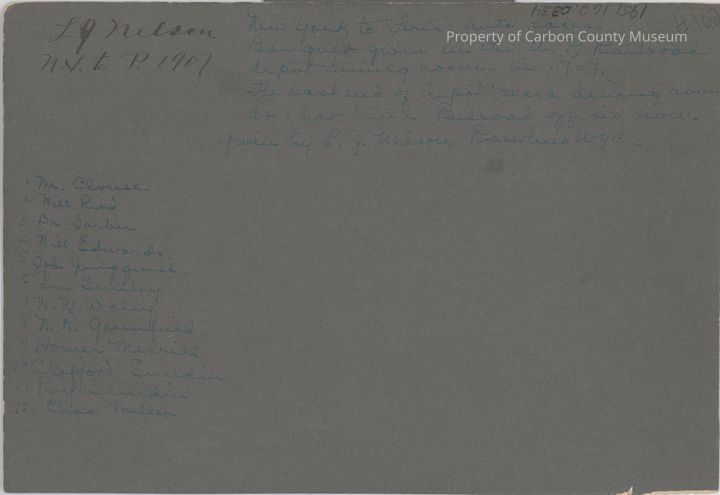 L J Nelson
N.Y. to P. 1907
New York to Paris auto races.
Banquet given in the U. P. Railroad
depot dining room in 1907.
The east end of depot was a dining room
at that time Railroad offices now.
given by L. J. Nelson Rawlins Wyo.
Property of Carbon County Museum
1 Mr. Clouse
2 Will Ried
3 Dr. Barber
4 Will Edwards
5 Bob Jungquist
6
7 M. W. Daley
8 N. R. Greenfield
9 Homer Merrill
10 Clifford Sundin
11 Sundin
12. Chas. Miller